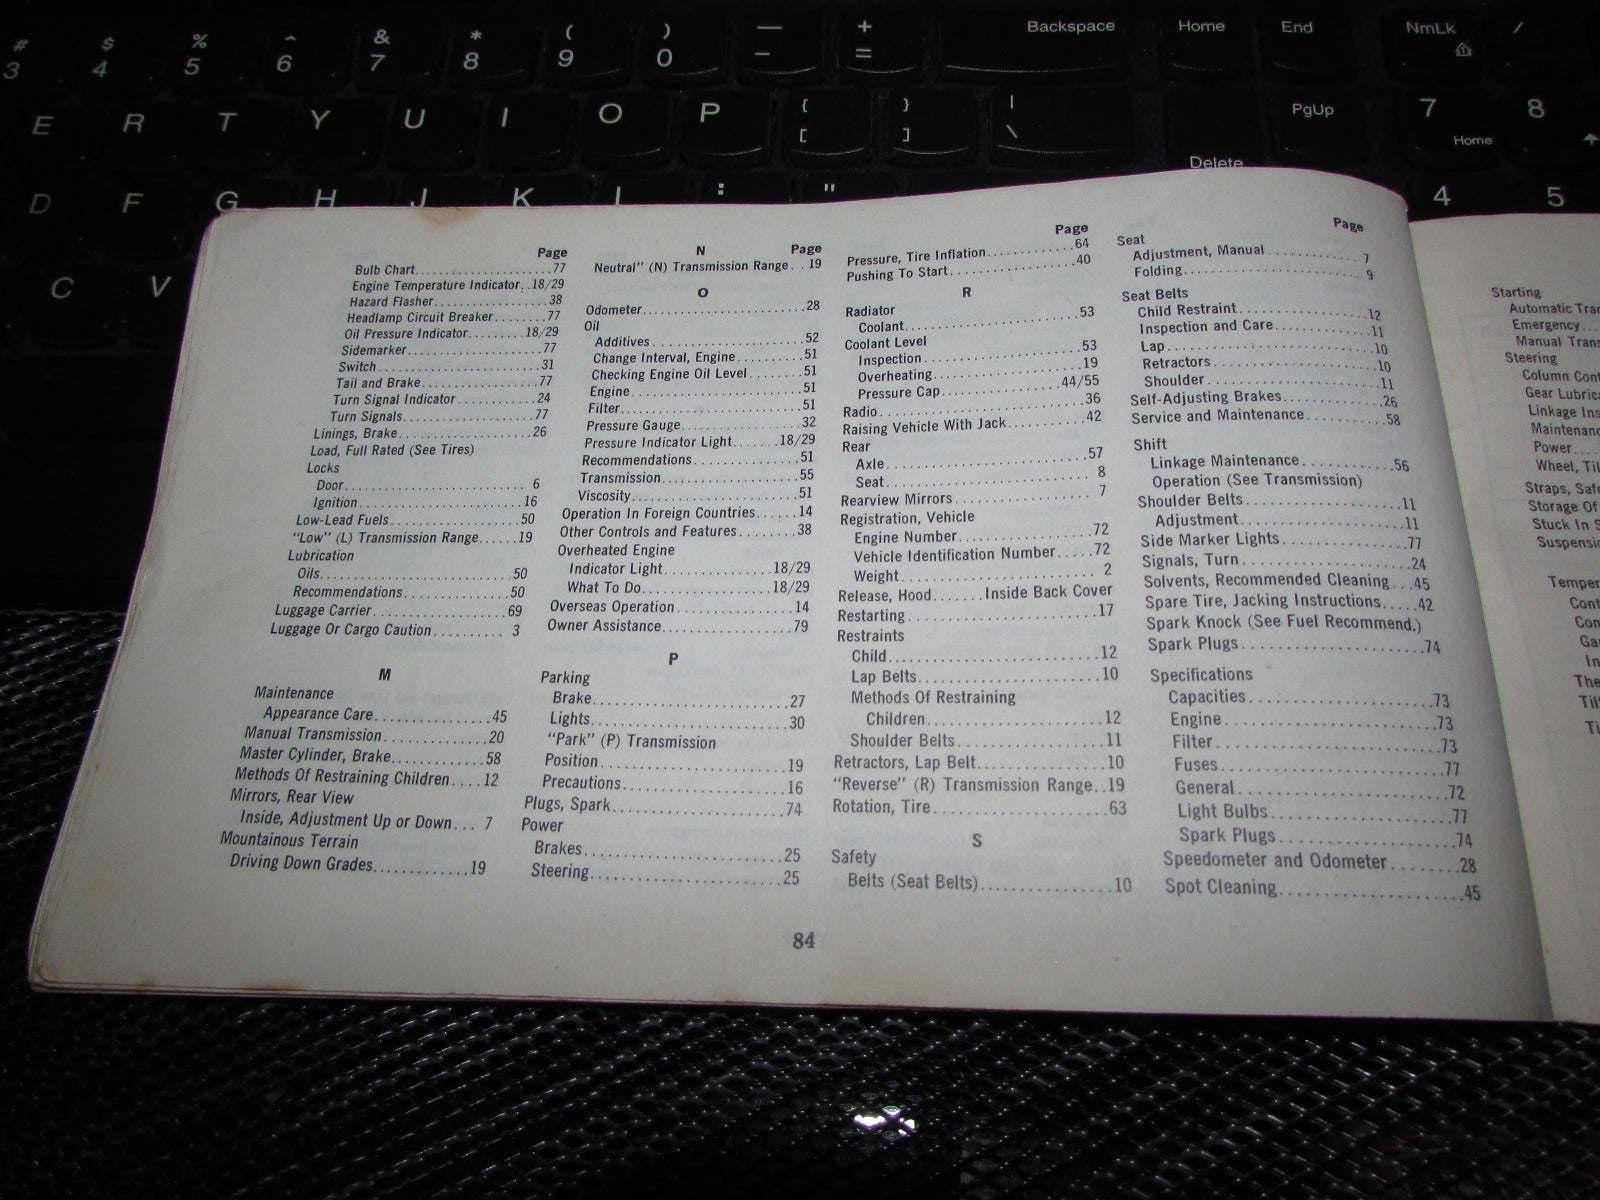 # $ % ^ & * ( ) — + Backspace Home End NmLk /
3 4 5 6 7 8 9 0 - =
E R T Y U I O P { } | PgUp 7 8
[ ] \ Home
Delete
D F G H J K L : " 4 5
C V
Page
Bulb Chart......................77
Engine Temperature Indicator..18/29
Hazard Flasher.................38
Headlamp Circuit Breaker........77
Oil Pressure Indicator........18/29
Sidemarker....................77
Switch.........................31
Tail and Brake..................77
Turn Signal Indicator............24
Turn Signals...................77
Linings, Brake....................26
Load, Full Rated (See Tires)
Locks
Door........................... 6
Ignition........................16
Low-Lead Fuels...................50
"Low" (L) Transmission Range......19
Lubrication
Oils............................50
Recommendations................50
Luggage Carrier...................69
Luggage Or Cargo Caution.......... 3
M
Maintenance
Appearance Care................45
Manual Transmission...............20
Master Cylinder, Brake.............58
Methods Of Restraining Children....12
Mirrors, Rear View
Inside, Adjustment Up or Down... 7
Mountainous Terrain
Driving Down Grades.............19
N Page
Neutral" (N) Transmission Range..19
O
Odometer........................28
Oil
Additives.......................52
Change Interval, Engine..........51
Checking Engine Oil Level........51
Engine.........................51
Filter..........................51
Pressure Gauge.................32
Pressure Indicator Light.......18/29
Recommendations................51
Transmission....................55
Viscosity.......................51
Operation In Foreign Countries......14
Other Controls and Features........38
Overheated Engine
Indicator Light................18/29
What To Do...................18/29
Overseas Operation................14
Owner Assistance..................79
P
Parking
Brake..........................27
Lights..........................30
"Park" (P) Transmission
Position........................19
Precautions.....................16
Plugs, Spark......................74
Power
Brakes.........................25
Steering........................25
Page
Pressure, Tire Inflation...........64
Pushing To Start..................40
R
Radiator
Coolant........................53
Coolant Level
Inspection......................53
Overheating....................19
Pressure Cap................44/55
Radio...........................36
Raising Vehicle With Jack..........42
Rear
Axle...........................57
Seat........................... 8
Rearview Mirrors.................. 7
Registration, Vehicle
Engine Number.................72
Vehicle Identification Number.....72
Weight......................... 2
Release, Hood.......Inside Back Cover
Restarting........................17
Restraints
Child..........................12
Lap Belts......................10
Methods Of Restraining
Children......................12
Shoulder Belts..................11
Retractors, Lap Belt...............10
"Reverse" (R) Transmission Range..19
Rotation, Tire.....................63
S
Safety
Belts (Seat Belts)...............10
Page
Seat
Adjustment, Manual............. 7
Folding........................ 9
Seat Belts
Child Restraint.................12
Inspection and Care.............11
Lap............................10
Retractors.....................10
Shoulder.......................11
Self-Adjusting Brakes.............26
Service and Maintenance..........58
Shift
Linkage Maintenance............56
Operation (See Transmission)
Shoulder Belts...................11
Adjustment....................11
Side Marker Lights...............77
Signals, Turn....................24
Solvents, Recommended Cleaning...45
Spare Tire, Jacking Instructions.....42
Spark Knock (See Fuel Recommend.)
Spark Plugs......................74
Specifications
Capacities.....................73
Engine.........................73
Filter..........................73
Fuses..........................77
General........................72
Light Bulbs....................77
Spark Plugs....................74
Speedometer and Odometer........28
Spot Cleaning....................45
84
Starting
Automatic
Emergency...
Manual
Steering
Column
Gear
Linkage
Power....
Wheel,
Straps,
Storage Of
Stuck In